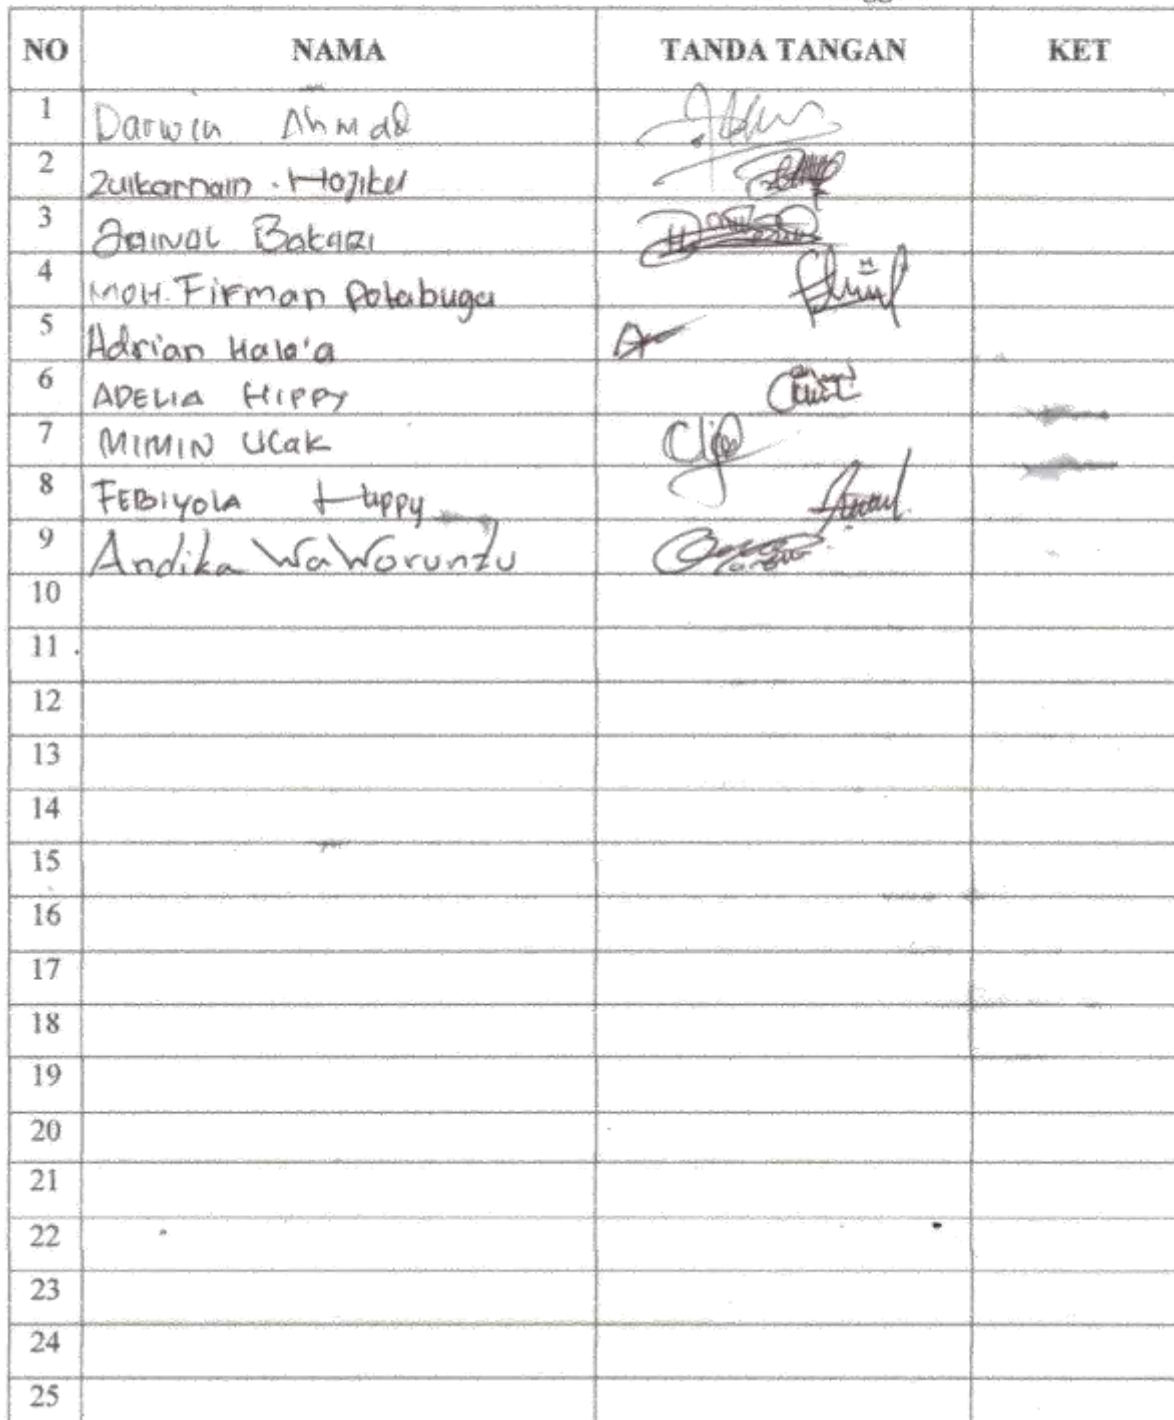 NO NAMA TANDA TANGAN KET
1 Darwin Ahmad
2 Zulkarnain . Hojiku
3 Jainal Bakari
4 MOH. Firman Polabuga
5 Adrian Hala'a
6 ADELIA HIPPY
7 MIMIN UCaK
8 FEBIYOLA Hippy
9 Andika WaWoruntu
10
11
12
13
14
15
16
17
18
19
20
21
22
23
24
25